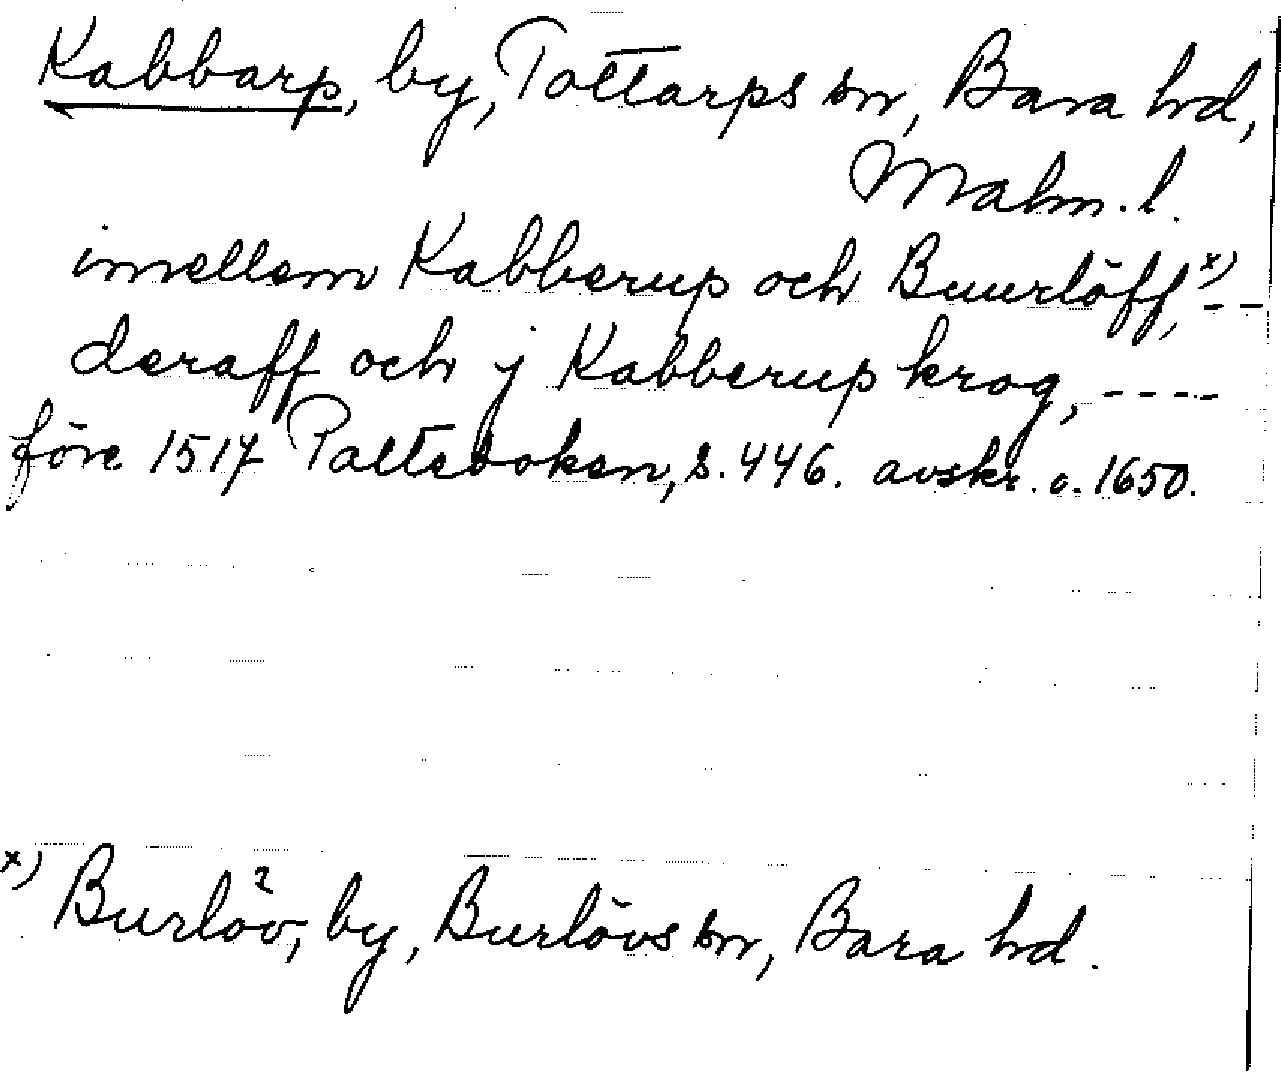 Kabbarp, by, Tottarps sn, Bara hd,
Malm. l.
imellem Kabberup och Buurlöff, x) --
deraff och j Kabberup krog, ----
före 1517 Palteboken, s. 446. avskr. o. 1650.
x) Burlöv, by, Burlövs sn, Bara hd.